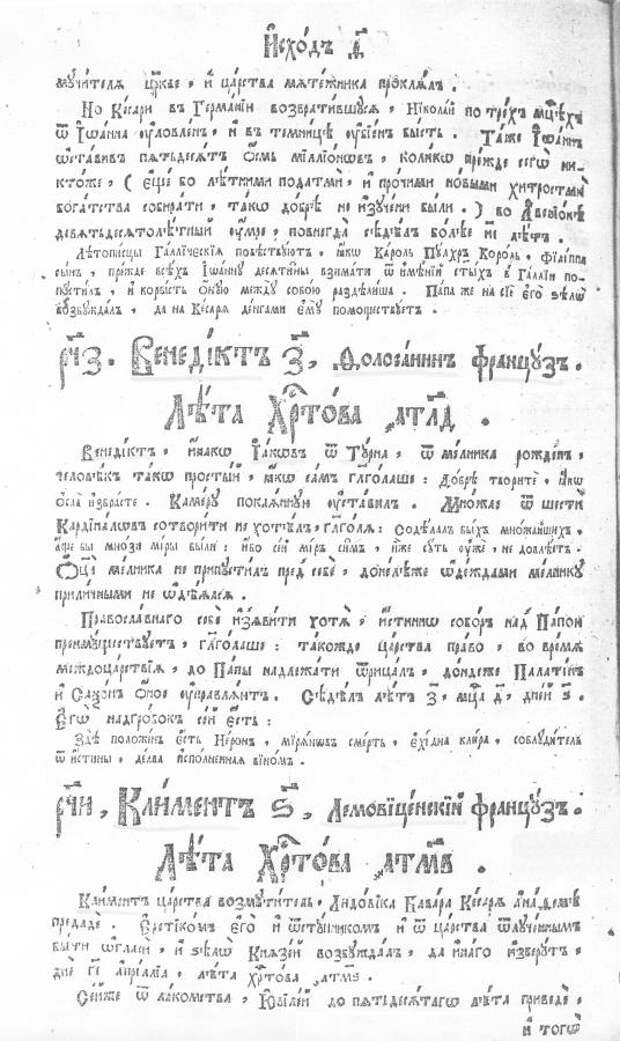 Исхо́дъ д҃
мꙋчи́телѧ цр҃кве , и҆ ца́рства мѧте́жника проклѧ́лъ .
Но Ке́сари въ Герма́нїи возврати́вшꙋсѧ , Нїкола́й по трⷯе́хъ мцⷭ҇ѣхъ
ѿ Іѡа́нна ᲂу҆ло́вленъ , и҆ въ темни́цѣ ᲂу҆бїе́нъ бы́сть . Та́же Іѡа́ннъ
ѡ҆ста́вивъ пѧтьдесѧ́тъ ѻ҆́смь миллїо́нѡвъ , коли́кѡ пре́жде сегѡ̀ ни-
кто́же , ( є҆ще́ бо лѣ́тними податмѝ , и҆ про́чими но́выми хи́тростьмѝ
бога́тства собира́ти , та́кѡ до́брѣ не и҆зꙋче́ни бы́ли . ) во Авенїо́нѣ
девѧтьдесѧтолѣ́тный ᲂу҆́мре , повнегда̀ сѣдѣ́лъ бо́лѣе и҃і лѣ́тъ .
Лѣтопи́сцы Галли́ческїѧ повѣ́ствꙋютъ , ꙗ҆́кѡ Ка́ролъ Пꙋ́лхръ Коро́ль , Фїлі́ппа
сы́нъ , пре́жде всѣ́хъ Іѡа́ннꙋ десѧти́ны взима́ти ѿ и҆мѣ́нїй ст҃ы́хъ в̾ Га́ллїи по-
пꙋсти́лъ , и҆ коры́сть ѻ҆́нꙋю междꙋ̀ собо́ю раздѣли́ша . Па́па же на сїѐ є҆го̀ ѕѣлѡ̀
возбꙋжда́лъ , да на Ке́сарѧ де́нгами є҆мꙋ̀ помо́щствꙋетъ .
рч҃з . Венеді́ктъ з҃ , Ѳолоса́нинъ францꙋ́зъ .
Лѣ́та Хрⷭ҇то́ва ҂атл҃д .
Венеді́ктъ , и҆на́кѡ Іа́кѡвъ ѿ Тꙋ́рна , ѿ ме́лника рожде́нъ ,
человѣ́къ та́кѡ просты́й , ꙗ҆́кѡ са́мъ гл҃го́лаше : До́брѣ творитѐ , ꙗ҆́кѡ
ѻ҆сла̀ и҆збра́сте . Ка́мерꙋ покаѧ́ннꙋю ᲂу҆ста́вилъ . Мно́жае ѿ шестѝ
Кардїна́лѡвъ сотвори́ти не хотѣ́лъ , гл҃го́лѧ : Содѣ́лалъ бы́хъ мно́жайшихъ ,
а҆́ще бы мно́зи мі́ры бы́ли : и҆́бо се́й мі́ръ си́мъ , и҆̀же сꙋ́ть ᲂу҆жѐ , не довлѣ́етъ .
Ѻ҆ц҃а̀ ме́лника не припꙋсти́лъ пред̾ себѐ , до́нелѣже ѻ҆де́ждами ме́лникꙋ
прили́чными не ѡ҆дѣ́ѧлсѧ .
Правосла́внаго себѐ и҆з̾ѧви́ти хотѧ̀ , и҆́стиннѡ собо́ръ над̾ Па́пой
преимꙋ́ществꙋетъ , гл҃го́лаше : та́кожде ца́рства пра́во , во вре́мѧ
междоца́рствїѧ , до Па́пы надлежа́ти ѿрица́лъ , до́ндеже Палатїнъ
и҆ Са́ѯонъ ѻ҆́ное ᲂу҆правлѧ́ютъ . Сѣдѣ́лъ лѣ́тъ з҃ , мцⷭ҇а д҃ , дне́й ѕ҃ .
Є҆гѡ̀ надгро́бокъ се́й є҆́сть :
Здѣ̀ поло́женъ є҆́сть Неро́нъ , мі́рѧнѡвъ сме́рть , є҆хі́дна кли́ра , соблꙋди́тель
ѿ и҆́стины , де́лва и҆спо́лненная вїно́мъ .
рч҃и , Кли́ментъ ѕ҃ , Лемовіце́нскїй францꙋ́зъ .
Лѣ́та Хрⷭ҇то́ва ҂атм҃в .
Кли́ментъ ца́рства возмꙋти́тель , Лꙋдові́ка Бава́ра Ке́сарѧ а҆на́ѳемѣ
предадѐ . Є҆рети́комъ є҆го̀ и҆ ѿстꙋ́пникомъ и҆ ѿ ца́рства ѿлꙋче́ннымъ
бы́ти ѡ҆гласѝ , и҆ ѕѣлѡ̀ Князе́й возбꙋжда́лъ , да и҆на́го и҆зберꙋ́тъ ,
днѐ г҃і а҆прі́ллїа , лѣ́та Хрⷭ҇то́ва ҂атм҃ѕ .
Се́йже ѿ ла́комства , Юбїле́й до пѧтїдесѧ́тагѡ лѣ́та приведѐ ,
и҆ тогѡ̀